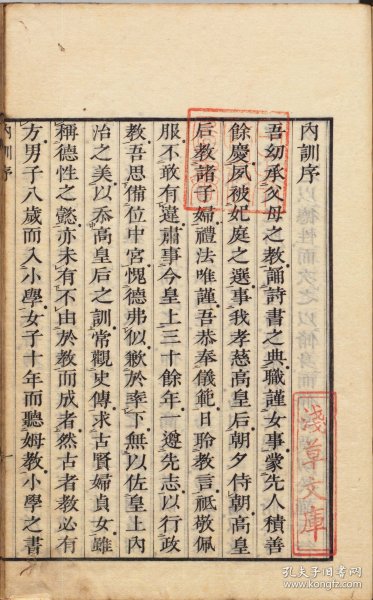 內訓序
吾幼承父母之教誦詩書之典職謹女事蒙先人積善
餘慶夙被妃庭之選事我孝慈高皇后朝夕侍朝高皇
后教諸子婦禮法唯謹吾恭奉儀範日聆教言祗敬佩
服不敢有違肅事今皇上三十餘年一遵先志以行政
教吾思備位中宮愧德弗似歉於率下無以佐皇上內
治之美以忝高皇后之訓常觀史傳求古賢婦貞女雖
稱德性之懿亦未有不由於教而成者然古者教必有
方男子八歲而入小學女子十年而聽姆教小學之書
內訓序
一
淺草文庫
孔夫子旧书网